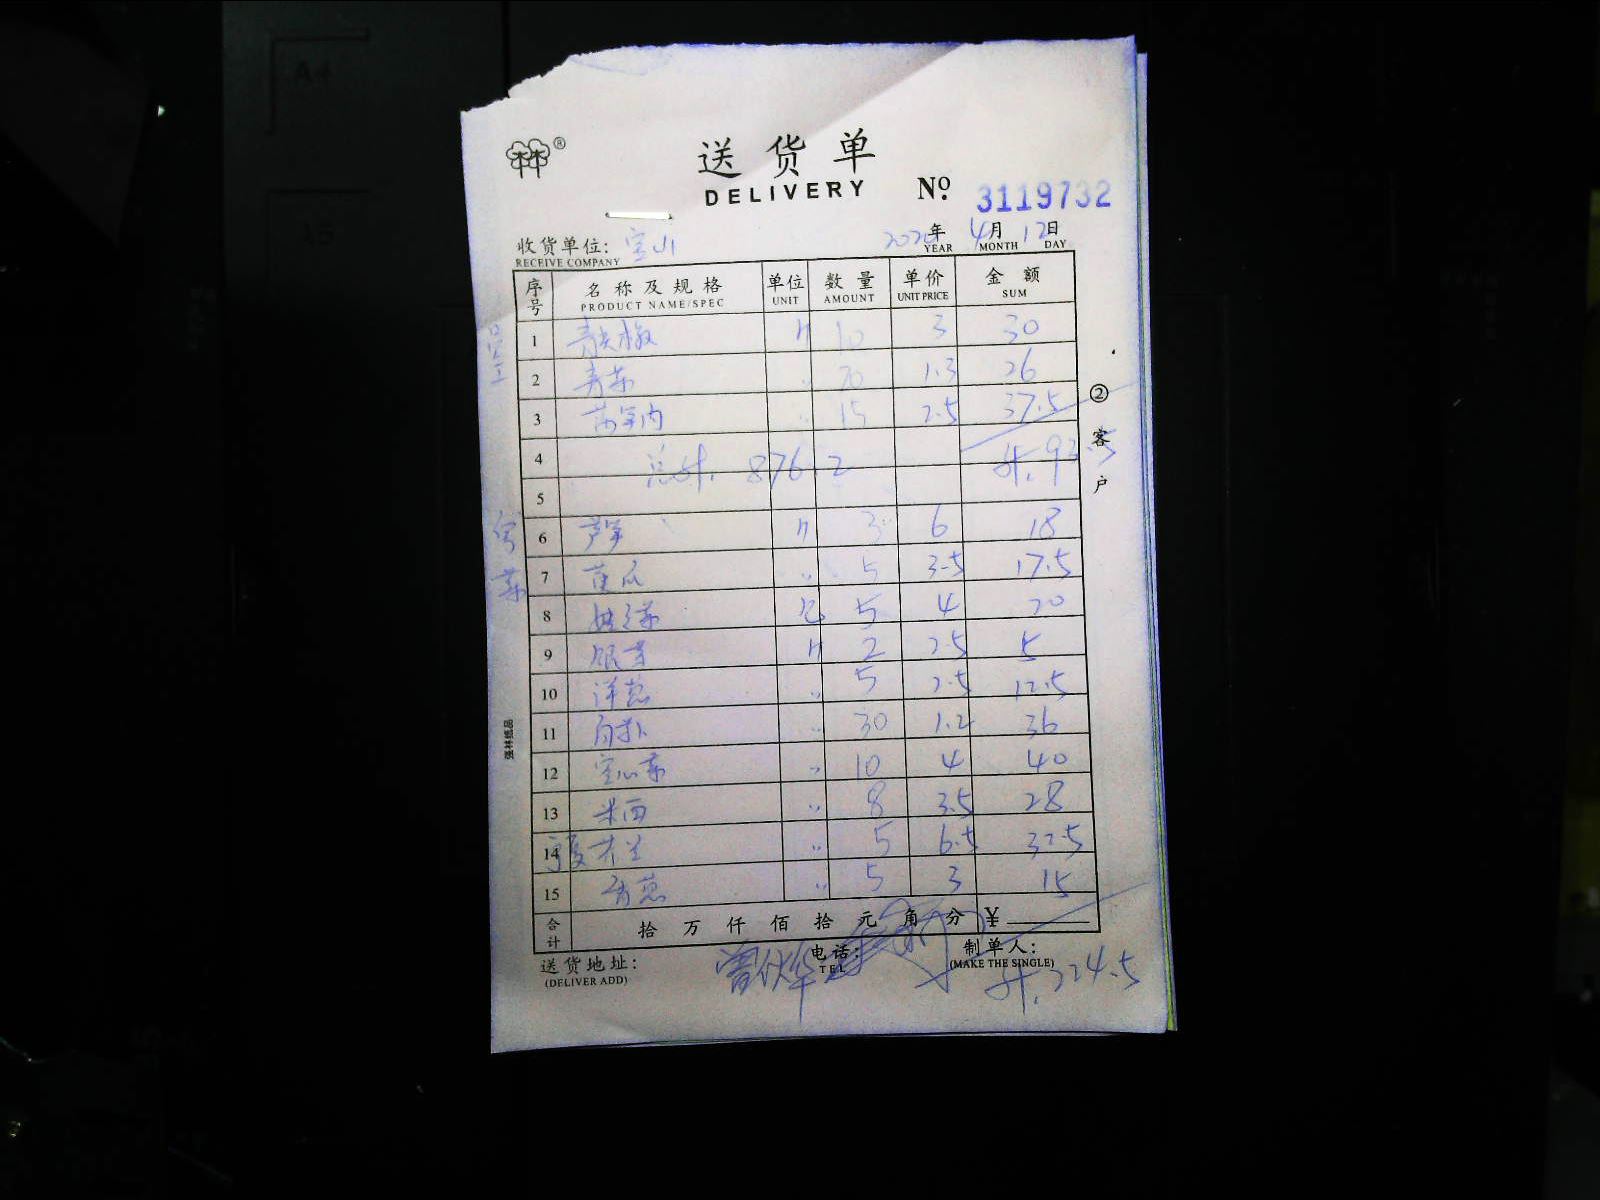 送货单
DELIVERY
No. 3119732
收货单位: 宝山 2020年 4月 12日
RECEIVE COMPANY YEAR MONTH DAY
序号 名称及规格 单位 数量 单价 金额
PRODUCT NAME/SPEC UNIT AMOUNT UNIT PRICE SUM
员工
1 青尖椒 斤 10 3 30
2 青菜 〃 20 1.3 26
3 莴笋肉 〃 15 2.5 37.5
4 总计. 876.2 计. 93.5
5
客菜
6 芦笋 斤 3 6 18
7 黄瓜 〃 5 3.5 17.5
8 娃娃菜 包 5 4 20
9 银芽 斤 2 2.5 5
10 洋葱 〃 5 2.5 12.5
11 〃 30 1.2 36
12 空心菜 〃 10 4 40
13 米西 〃 8 3.5 28
14 〃 5 6.5 32.5
15 香葱 〃 5 3 15
合计 拾 万 仟 佰 拾 元 角 分 ¥
送货地址: 电话: 制单人:
(DELIVER ADD) TEL (MAKE THE SINGLE)
计. 224.5
②客户
强林纸品
A4
A5